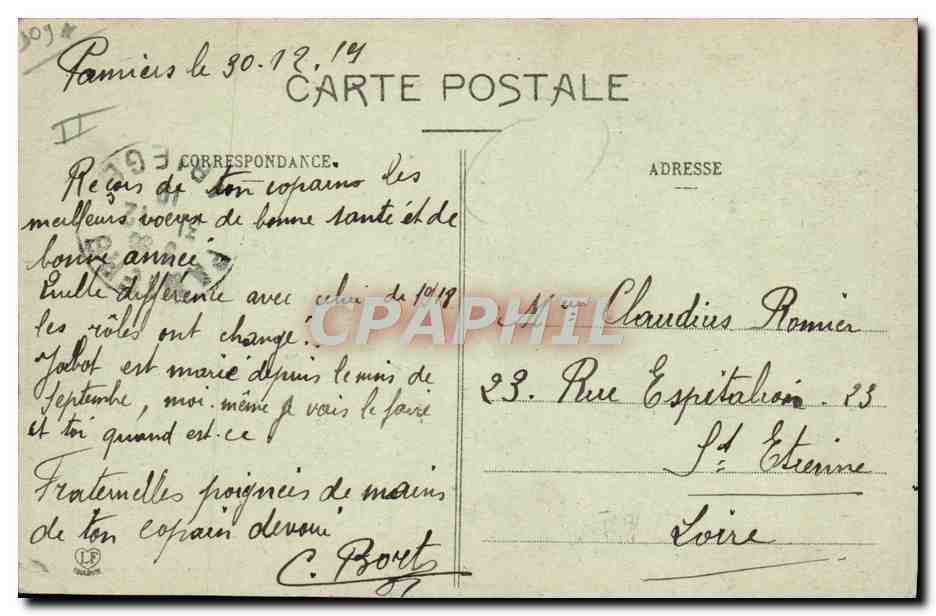 309 *
Pamiers le 30-12.19
CARTE POSTALE
II
CORRESPONDANCE
Reçois de ton copains les
meilleurs voeux de bonne santé et de
bonne année
Quelle différence avec celui de 1918
les rôles ont changé.
est marié depuis le mois de
septembre, moi-même je vais le faire
et toi quand est-ce.
Fraternelles poignées de mains
de ton copain dévoué
C. Bort
LF
ADRESSE
Claudius Romier
23. Rue Espitalion. 23
St Etienne
Loire
CPAPHIL